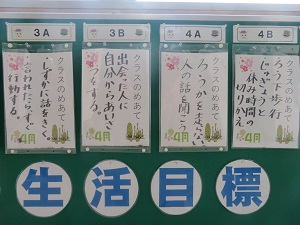 3A
クラスのめあて
しずかに話をきく。
いわれたらすぐ
行動する。
4月
3B
クラスのめあて
出会った人に
自分からあいさ
つをする。
4月
4A
クラスのめあて
ろうかを走らない
人の話を聞こう
4月
4B
クラスのめあて
ろう下歩行
じゅぎょうと
休み時間の
切りかえ
4月
生活目標